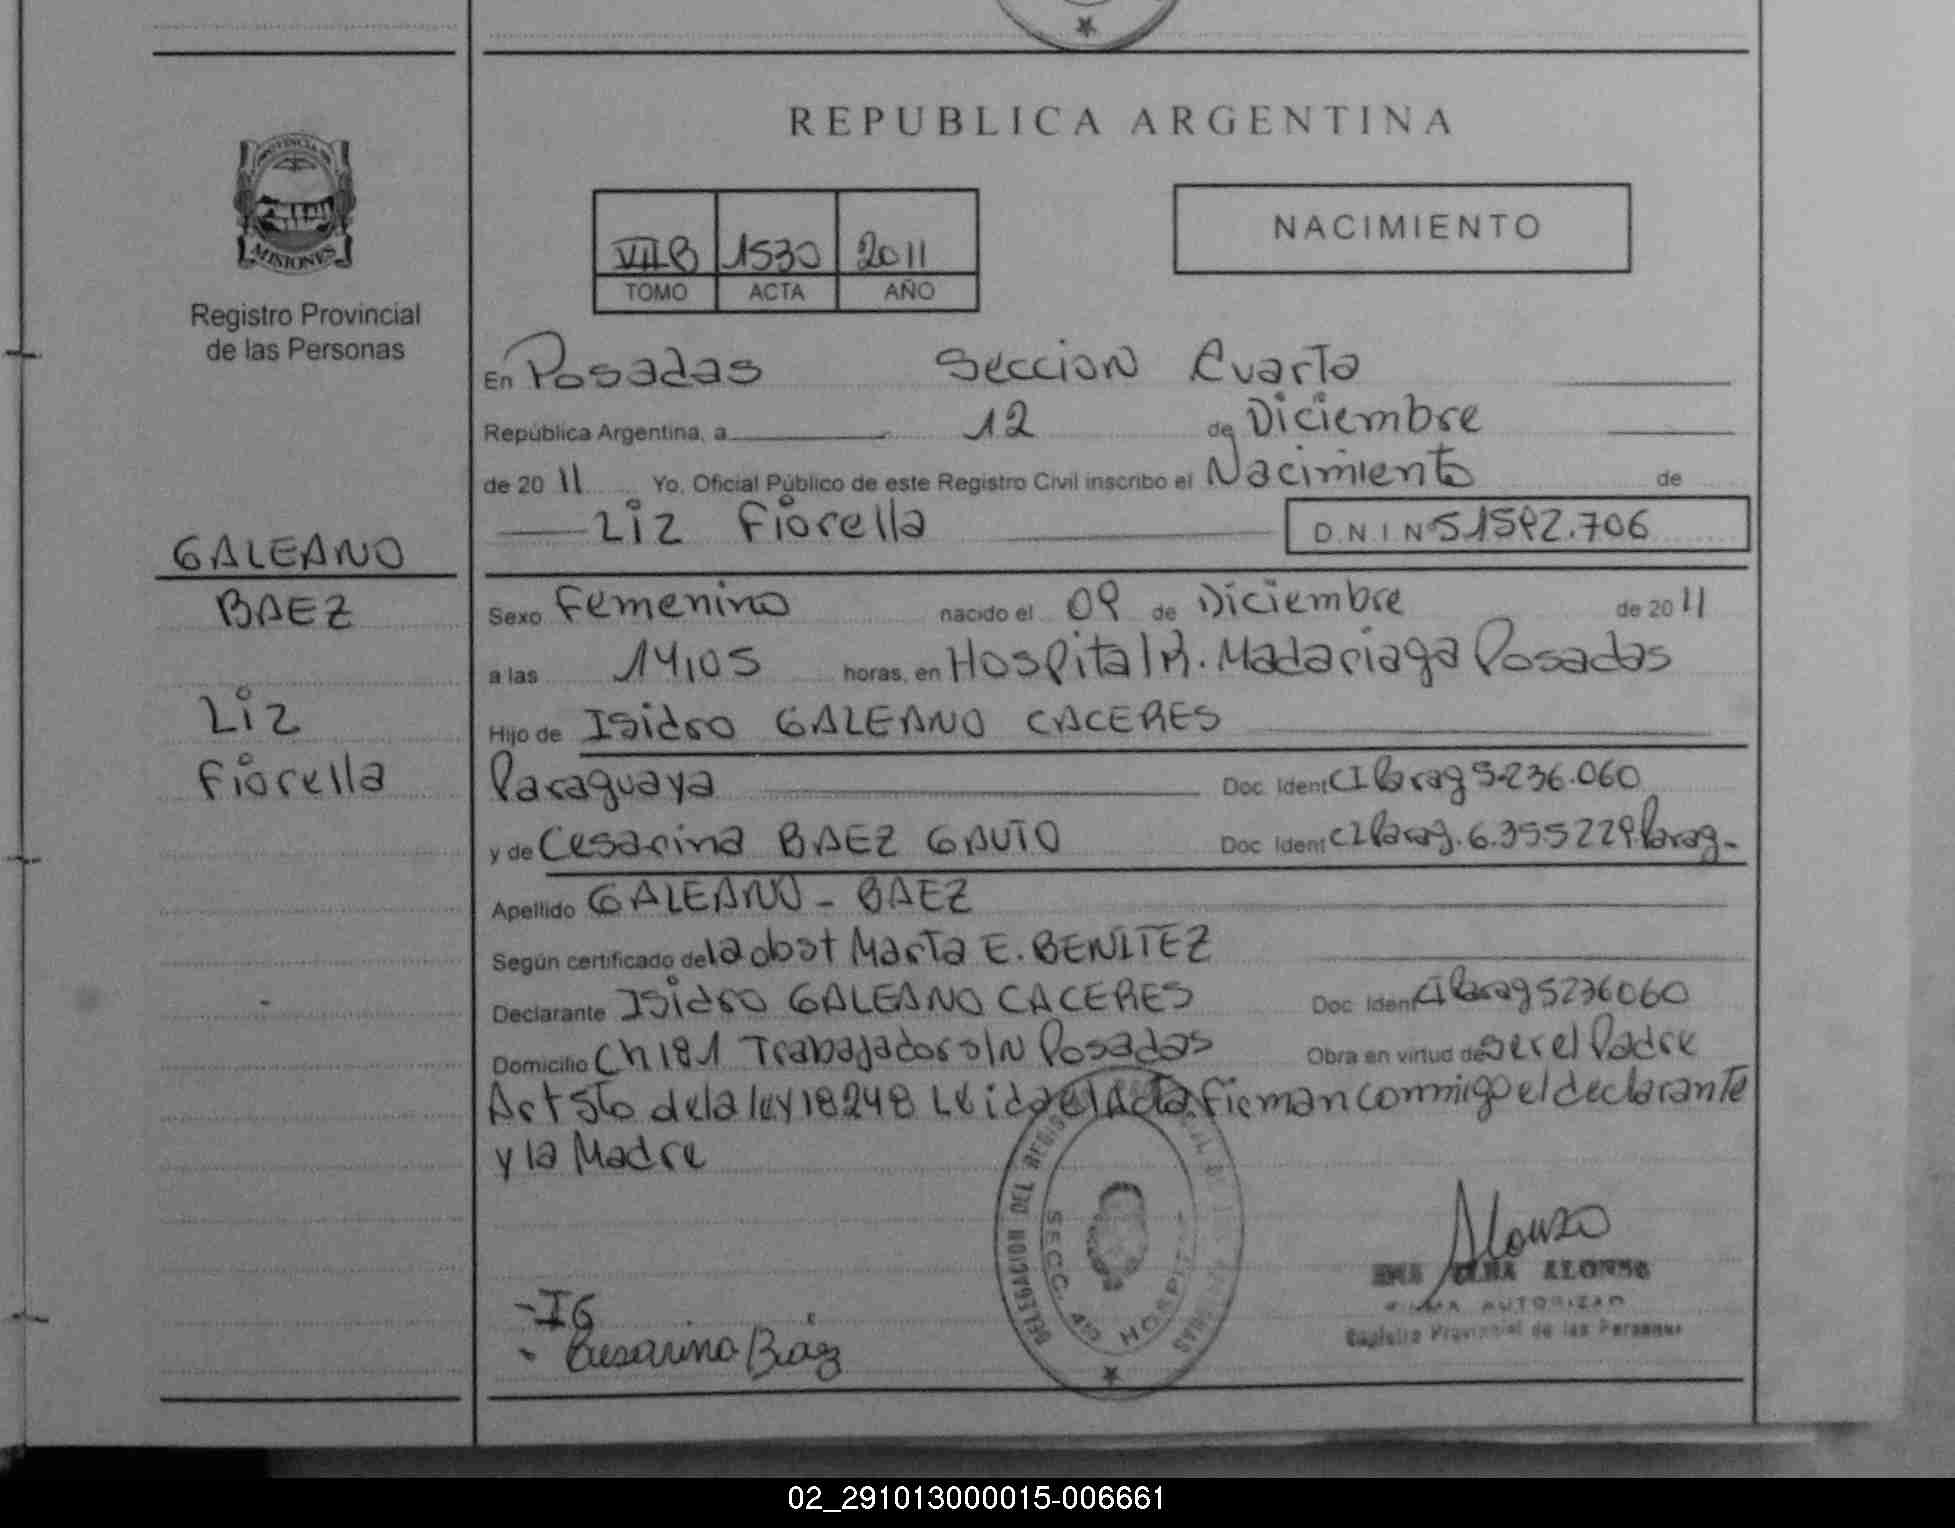 REPUBLICA ARGENTINA
PROVINCIA DE
MISIONES
Registro Provincial
de las Personas
VII B 1530 2011
TOMO ACTA AÑO
NACIMIENTO
En Posadas Seccion Cuarta
República Argentina, a 12 de Diciembre
de 20 11 Yo, Oficial Público de este Registro Civil inscribo el Nacimiento de
Liz Fiorella D.N.I Nº 51592.706
GALEANO
BAEZ
Liz
Fiorella
Sexo Femenino nacido el 09 de Diciembre de 20 11
a las 14,05 horas, en Hospital R. Madariaga Posadas
Hijo de Isidro GALEANO CACERES
Paraguaya Doc Ident CI Parag 5.236.060
y de Cesarina BAEZ GAUTO Doc Ident CI Parag. 6.355229 Parag-
Apellido GALEANO - BAEZ
Según certificado de la obst Marta E. BENITEZ
Declarante Isidro GALEANO CACERES Doc Ident CI Parag 5236060
Domicilio Ch 181 Trabajador s/N Posadas Obra en virtud de ser el Padre
Art 5to de la ley 18248 Leida el Acta, firman conmigo el declarante
y la Madre
DELEGACION DEL REGISTRO
SECC. 4ª HOSPIT
- IG
- Cesarina Baéz
Alonzo
ALONSO
FIRMA AUTORIZAD
Registro Provincial de las Personas
02_291013000015-006661